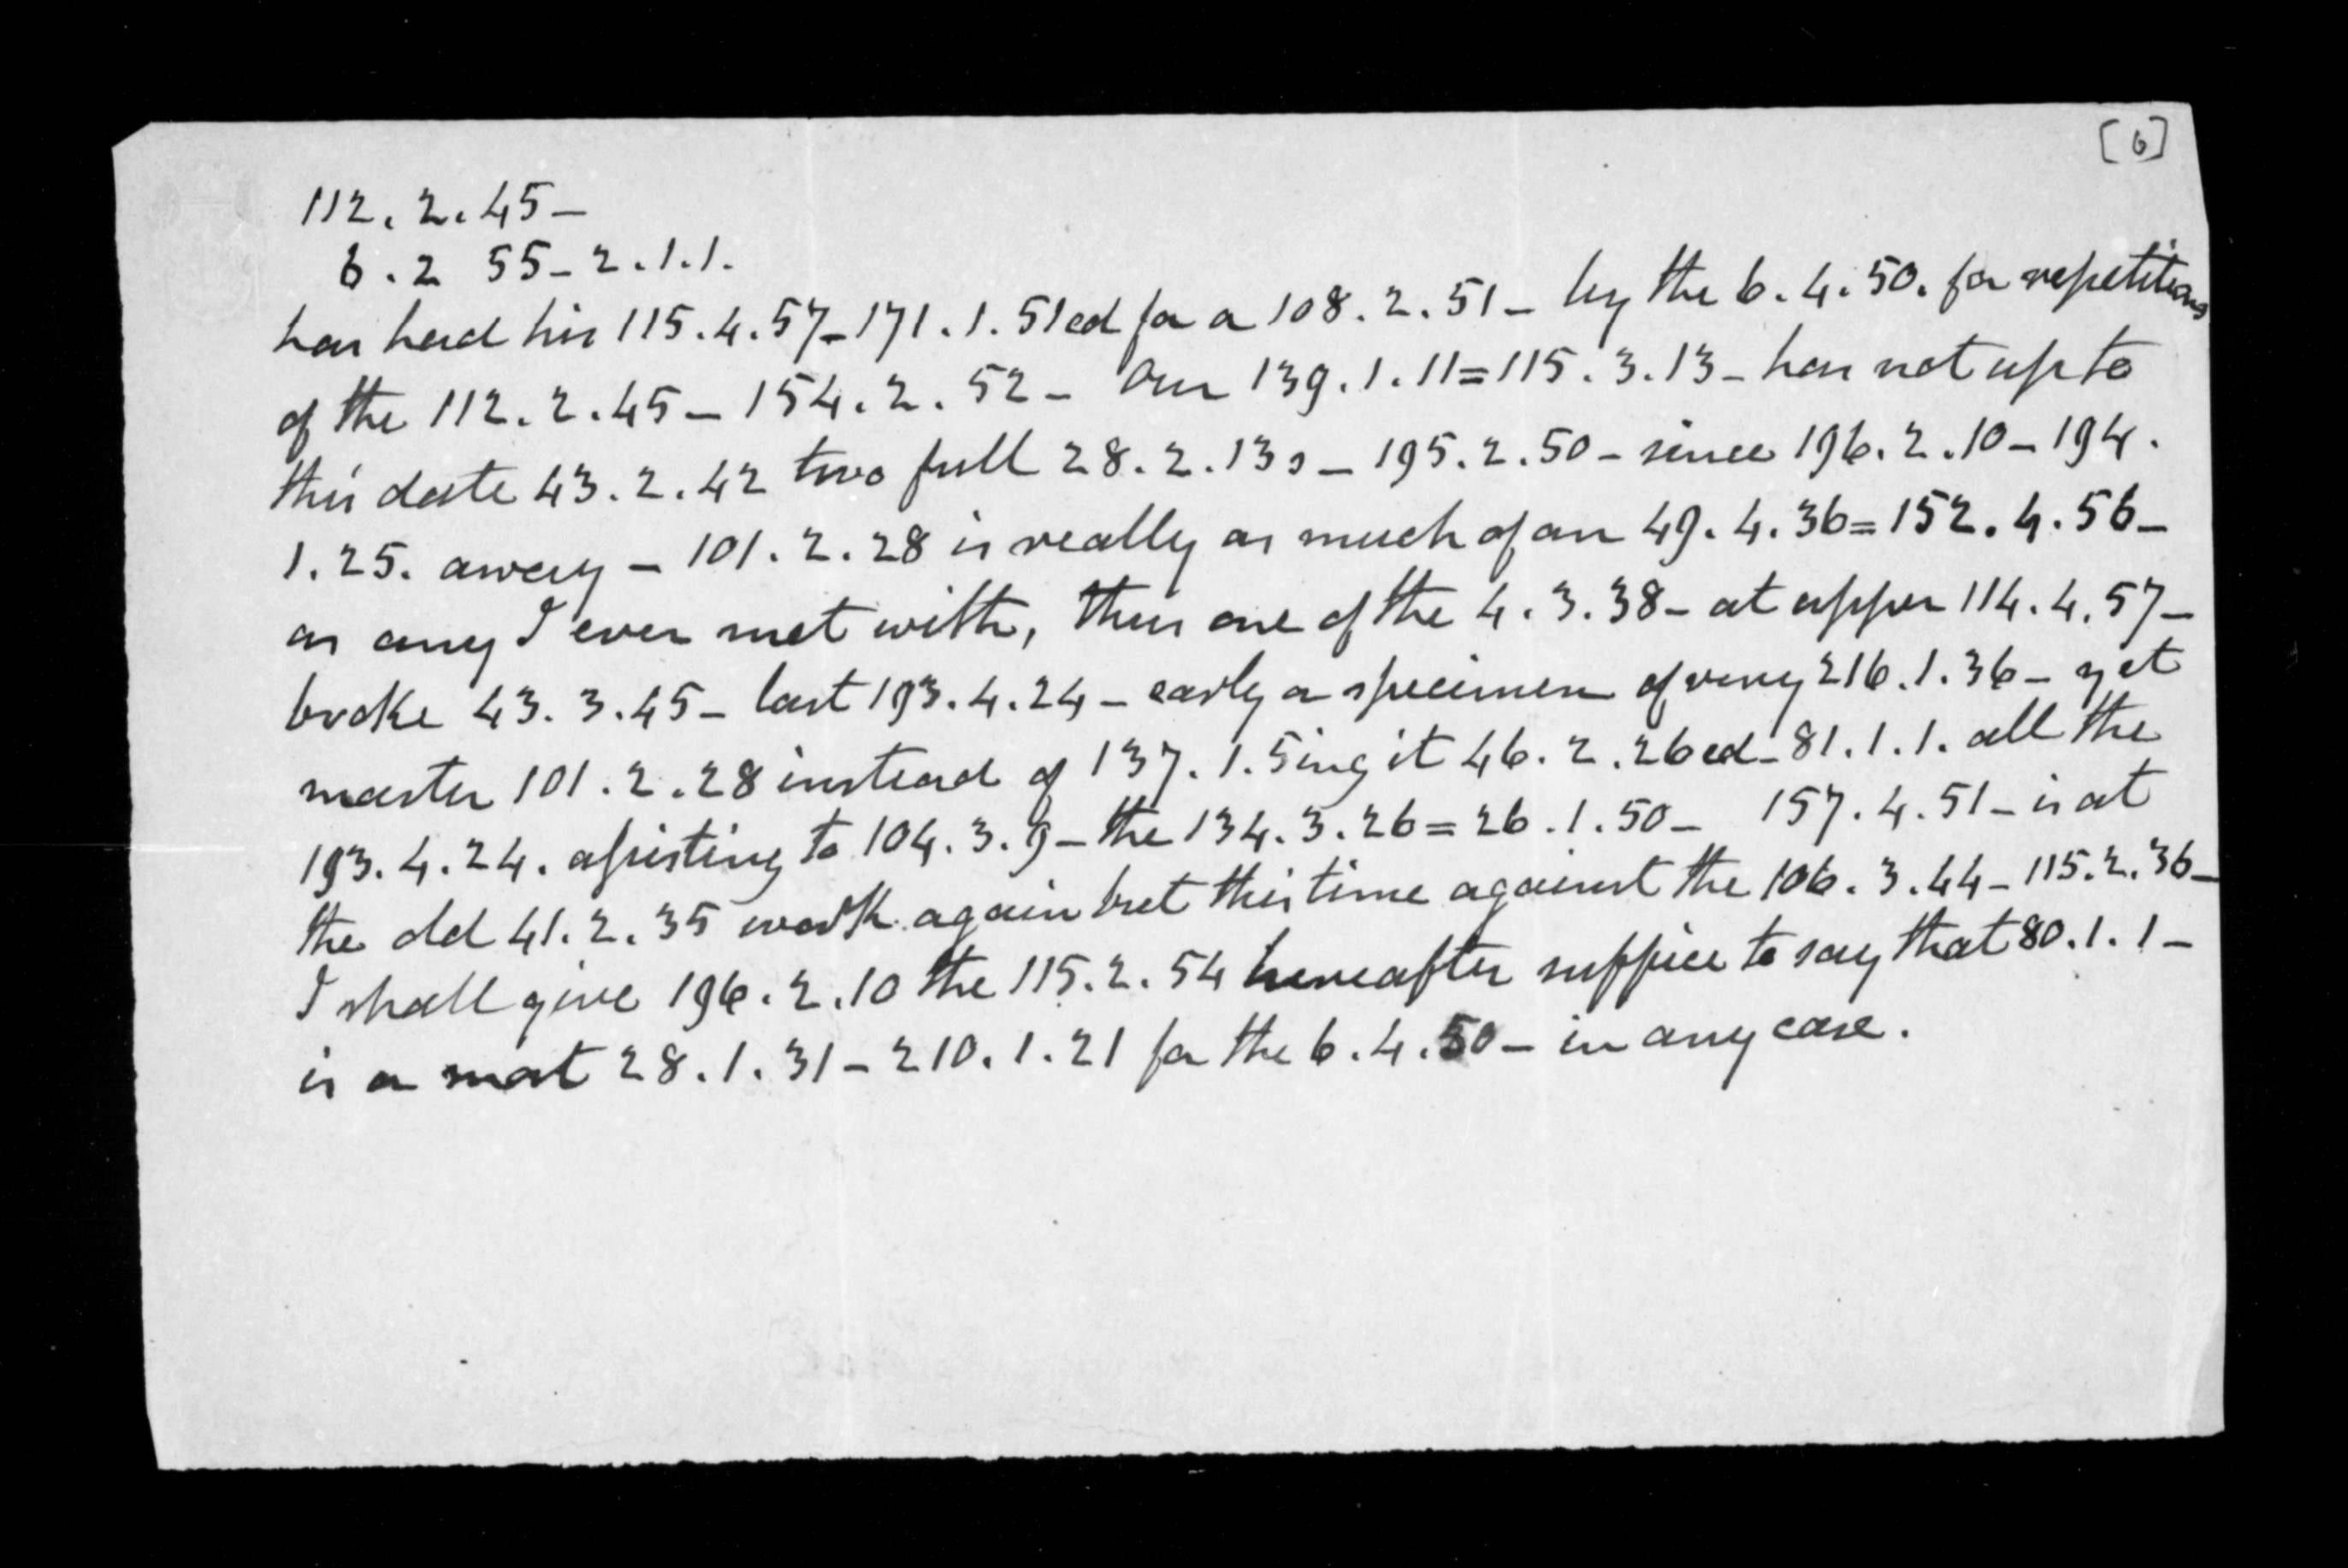 [6]
112. 2. 45 -
6. 2 55 - 2. 1. 1.
has had his 115. 4. 57 - 171. 1. 51ed for a 108. 2. 51 - by the 6. 4. 50. for repetitions
of the 112. 2. 45 - 154. 2. 52 - Our 139. 1. 11 = 115. 3. 13 - has not up to
this date 43. 2. 42 two full 28. 2. 13s - 195. 2. 50 - since 196. 2. 10 - 194.
1. 25. away - 101. 2. 28 is really as much of an 49. 4. 36 = 152. 4. 56 -
as any I ever met with, thus one of the 4. 3. 38 - at upper 114. 4. 57 -
broke 43. 3. 45 - last 193. 4. 24 - early a specimen of very 216. 1. 36 - yet
master 101. 2. 28 instead of 137. 1. 5ing it 46. 2. 26ed - 81. 1. 1. all the
193. 4. 24. assisting to 104. 3. 9 - the 134. 3. 26 = 26. 1. 50 - 157. 4. 51 - is at
the old 41. 2. 35 work again but this time against the 106. 3. 44 - 115. 2. 36 -
I shall give 196. 2. 10 the 115. 2. 54 hereafter suffice to say that 80. 1. 1 -
is a most 28. 1. 31 - 210. 1. 21 for the 6. 4. 50 - in any case.